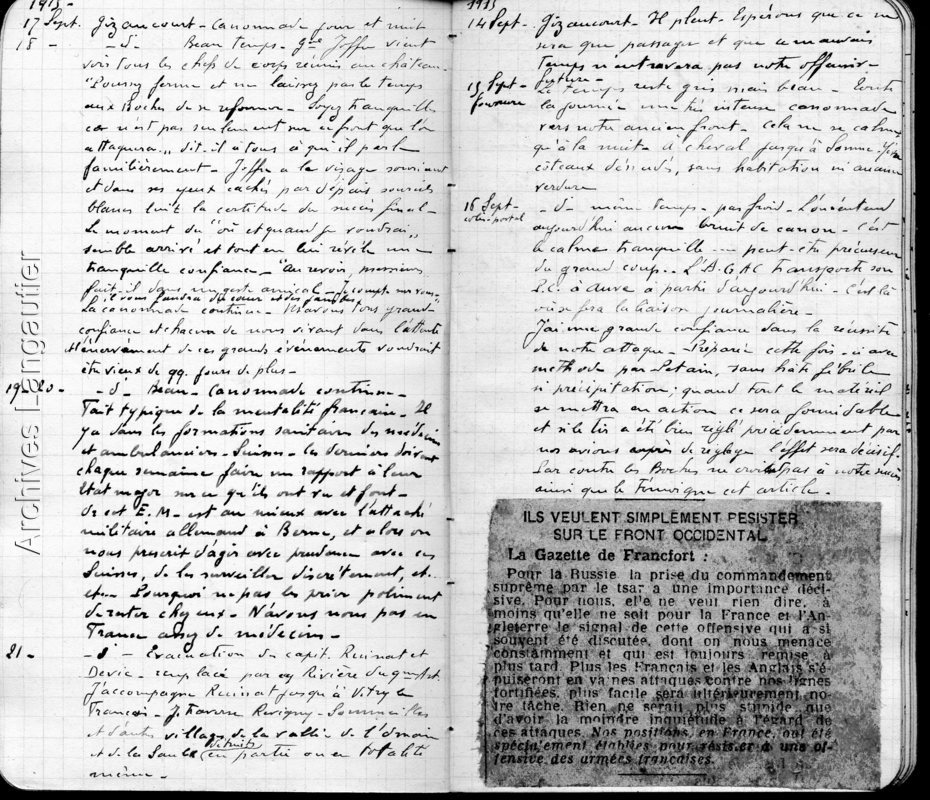 1915-
17 Sept. Gizaucourt - Canonnade jour et nuit
18 - - d - Beau temps. Gal Joffre vient
voir tous les chefs de corps réunis au château.
"Poussez ferme et ne laissez pas le temps
aux Boches de se reformer. Soyez tranquilles
car ce n'est pas seulement sur ce front que l'on
attaquera", dit-il à tous à qui il parle
familièrement - Joffre a le visage souriant
et dans ses yeux cachés par d'épais sourcils
blancs luit la certitude du succès final -
Le moment du "où et quand je voudrai"
semble arrivé et tout en lui révèle une
tranquille confiance - "Au revoir, messieurs
fait-il dans un geste amical - Je compte sur vous"
il vous faudra du cœur et des jambes
La canonnade continue - Nous avons tous grande
confiance et chacun de nous vivant dans l'attente
et l'énervement de ces grands événements voudrait
être vieux de qq. jours de plus -
19-20 - - d - Beau - Canonnade continue -
Trait typique de la mentalité française - Il
y a dans les formations sanitaires des médecins
et ambulanciers - Suisses - Ces derniers doivent
chaque semaine faire un rapport à leur
Etat major sur ce qu'ils ont vu et font -
Or cet E.M. est au mieux avec l'attaché
militaire allemand à Berne, et alors on
nous prescrit d'agir avec prudence avec ces
Suisses, de les surveiller discrètement, et..
etc - Pourquoi ne pas les prier poliment
de rester chez eux - N'avons nous pas en
France assez de médecins -
21 - - d - Evacuation du capit. Recinat et
remplacé par
J'accompagne Recinat jusqu'à Vitry le
François - Je traverse Revigny - Sommeilles
et d'autres villages de la vallée de l'Ornain
et de la Saulx détruits en partie ou en totalité
même -
1915
14 Sept. Gizaucourt - Il pleut - Espérons que ce ne
sera que passager et que ce mauvais
temps n'entravera pas notre offensive
future -
15 Sept - Le temps reste gris mais beau - Toute
la journée une très intense canonnade
vers notre ancien front - Cela ne se calme
qu'à la nuit - A cheval jusqu'à
côteaux dénudés, sans habitation ni aucune
verdure
16 Sept - - d - même temps - pas froid - L'on n'entend
aujourd'hui aucun bruit de canon - C'est
le calme tranquille .... peut-être précurseur
du grand coup.. L'A.G.AC transporte son
P.C. à Auve à partir d'aujourd'hui - C'est là
où se fera la liaison journalière -
J'ai une grande confiance dans la réussite
de notre attaque - Préparée cette fois-ci avec
méthode par Pétain, sans hâte fébrile
ni précipitation; quand tout le matériel
se mettra en action ce sera formidable
et si le tir a été bien réglé précédemment par
nos avions de réglage l'effet sera décisif.
Par contre les Boches ne croient pas à notre succès
ainsi que le témoigne cet article -
ILS VEULENT SIMPLEMENT RESISTER
SUR LE FRONT OCCIDENTAL
La Gazette de Francfort :
Pour la Russie la prise du commandement
suprême par le tsar a une importance déci-
sive. Pour nous, elle ne veut rien dire, à
moins qu'elle ne soit pour la France et l'An-
gleterre le signal de cette offensive qui a si
souvent été discutée, dont on nous menace
constamment et qui est toujours remise à
plus tard. Plus les Français et les Anglais s'é-
puiseront en vaines attaques contre nos lignes
fortifiées, plus facile sera ultérieurement no-
tre tâche. Rien ne serait plus stupide que
d'avoir la moindre inquiétude à l'égard de
ces attaques. Nos positions, en France, ont été
spécialement établies pour résister à une of-
fensive des armées françaises.
Archives Langautier